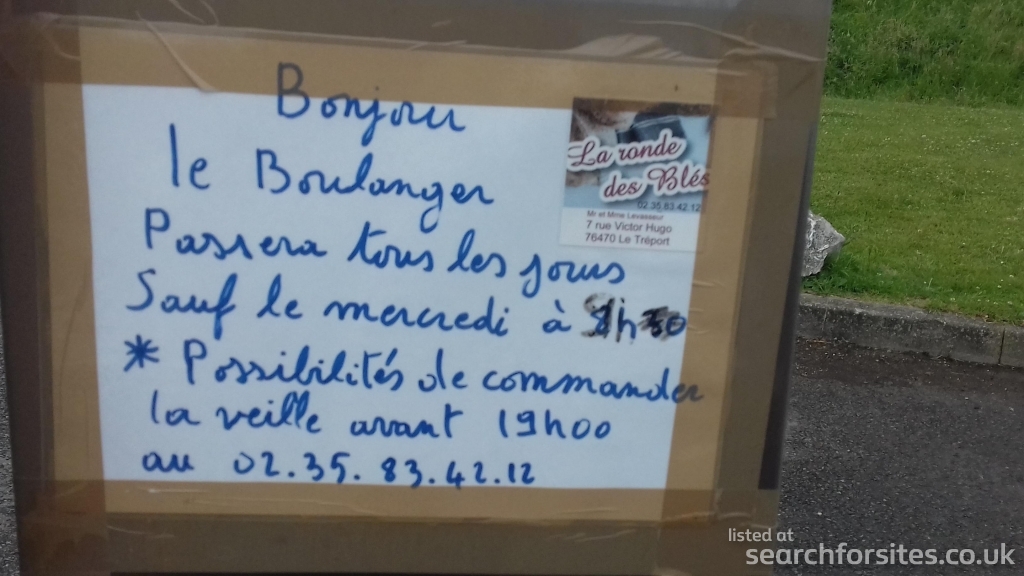 Bonjour
le Boulanger
Passera tous les jours
Sauf le mercredi à
* Possibilités de commander
la veille avant 19h00
au 02.35.83.42.12
La ronde
des Blés
02.35.83.42.12
Mr et Mme Levasseur
7 rue Victor Hugo
76470 Le Tréport
listed at
searchforsites.co.uk